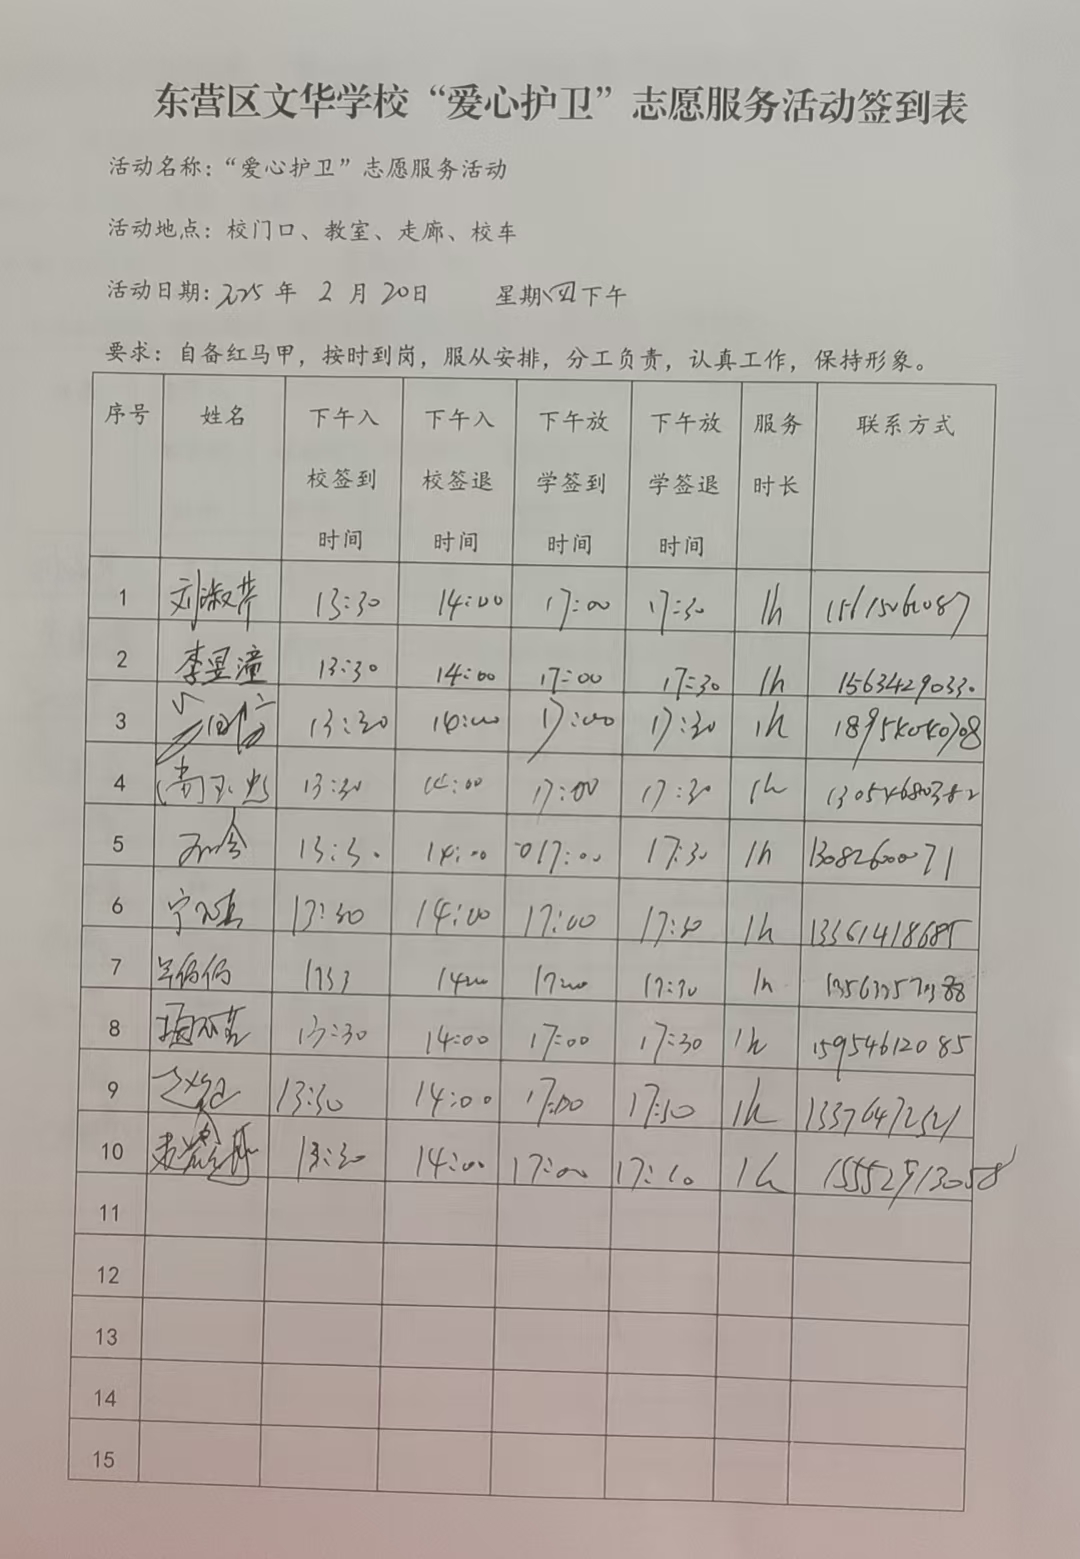 东营区文华学校“爱心护卫”志愿服务活动签到表
活动名称：“爱心护卫”志愿服务活动
活动地点：校门口、教室、走廊、校车
活动日期：2025年 2月20日 星期四下午
要求：自备红马甲，按时到岗，服从安排，分工负责，认真工作，保持形象。
序号 姓名 下午入校签到时间 下午入校签退时间 下午放学签到时间 下午放学签退时间 服务时长 联系方式
1 刘淑芹 13:30 14:00 17:00 17:30 1h 15615061087
2 李昱潼 13:30 14:00 17:00 17:30 1h 15634290330
3 13:30 14:00 17:00 17:30 1h 18954040708
4 13:30 14:00 17:00 17:30 1h 13054680382
5 13:30 14:00 17:00 17:30 1h 13082600071
6 13:30 14:00 17:00 17:30 1h 13361418685
7 1400 1700 17:30 1h
8 13:30 14:00 17:00 17:30 1h 15954612085
9 13:30 14:00 17:00 17:30 1h
10 13:30 14:00 17:00 1h 15552913058
11
12
13
14
15